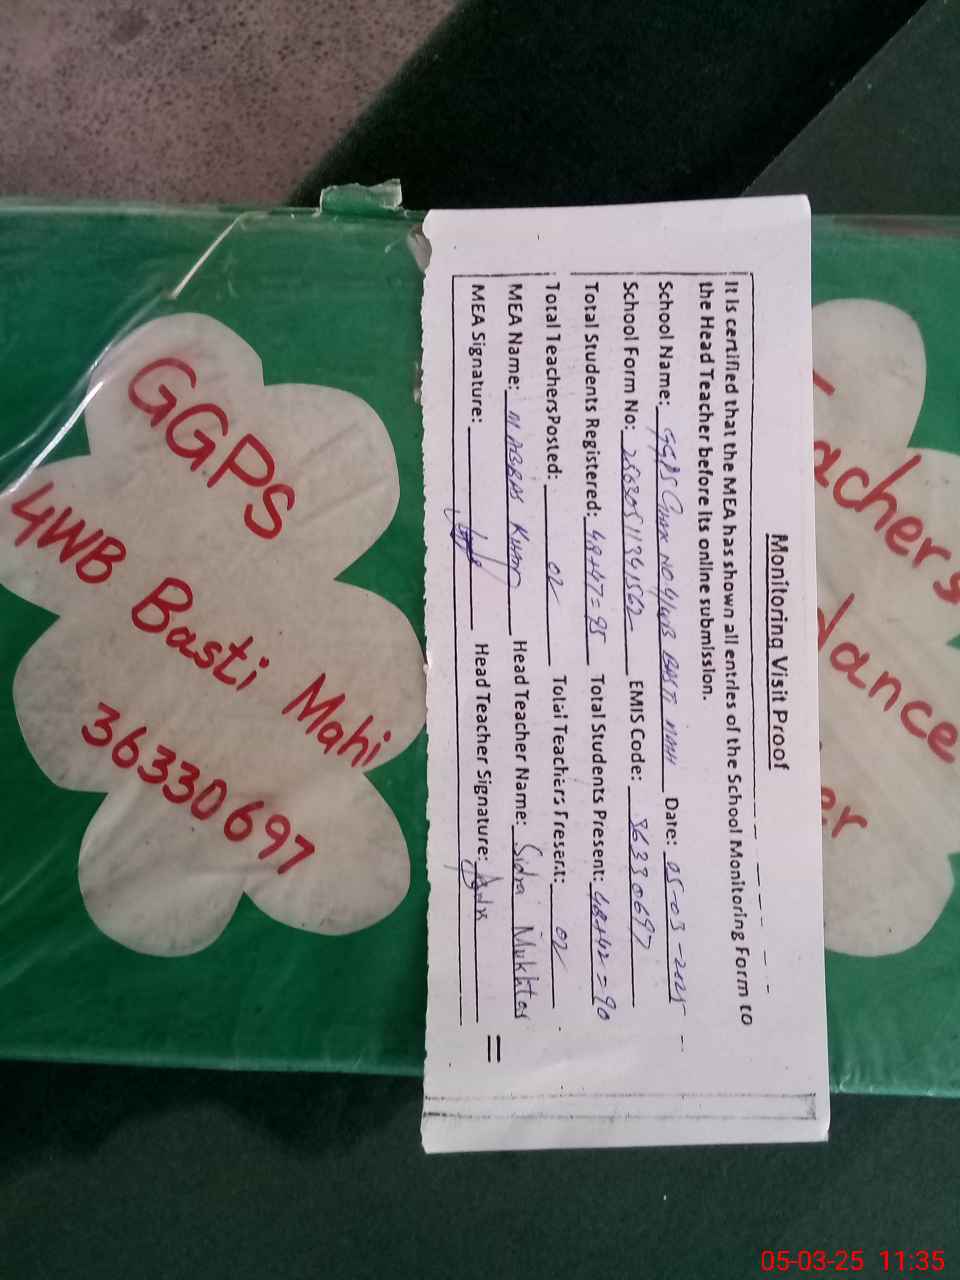 GGPS
4WB Basti Mahi
36330697
Monitoring Visit Proof
It is certified that the MEA has shown all entries of the School Monitoring Form to
the Head Teacher before its online submission.
School Name: GGPS NO 4/WB BASTI MAHI Date: 05-03-2025
School Form No: EMIS Code: 36330697
Total Students Registered: 48+47=95 Total Students Present: 48+42=90
Total TeachersPosted: 02 Total Teachers Present: 02
MEA Name: M ABBAS Head Teacher Name: Sidra Mukhtar
MEA Signature: Head Teacher Signature:
achers
dance
er
05-03-25 11:35